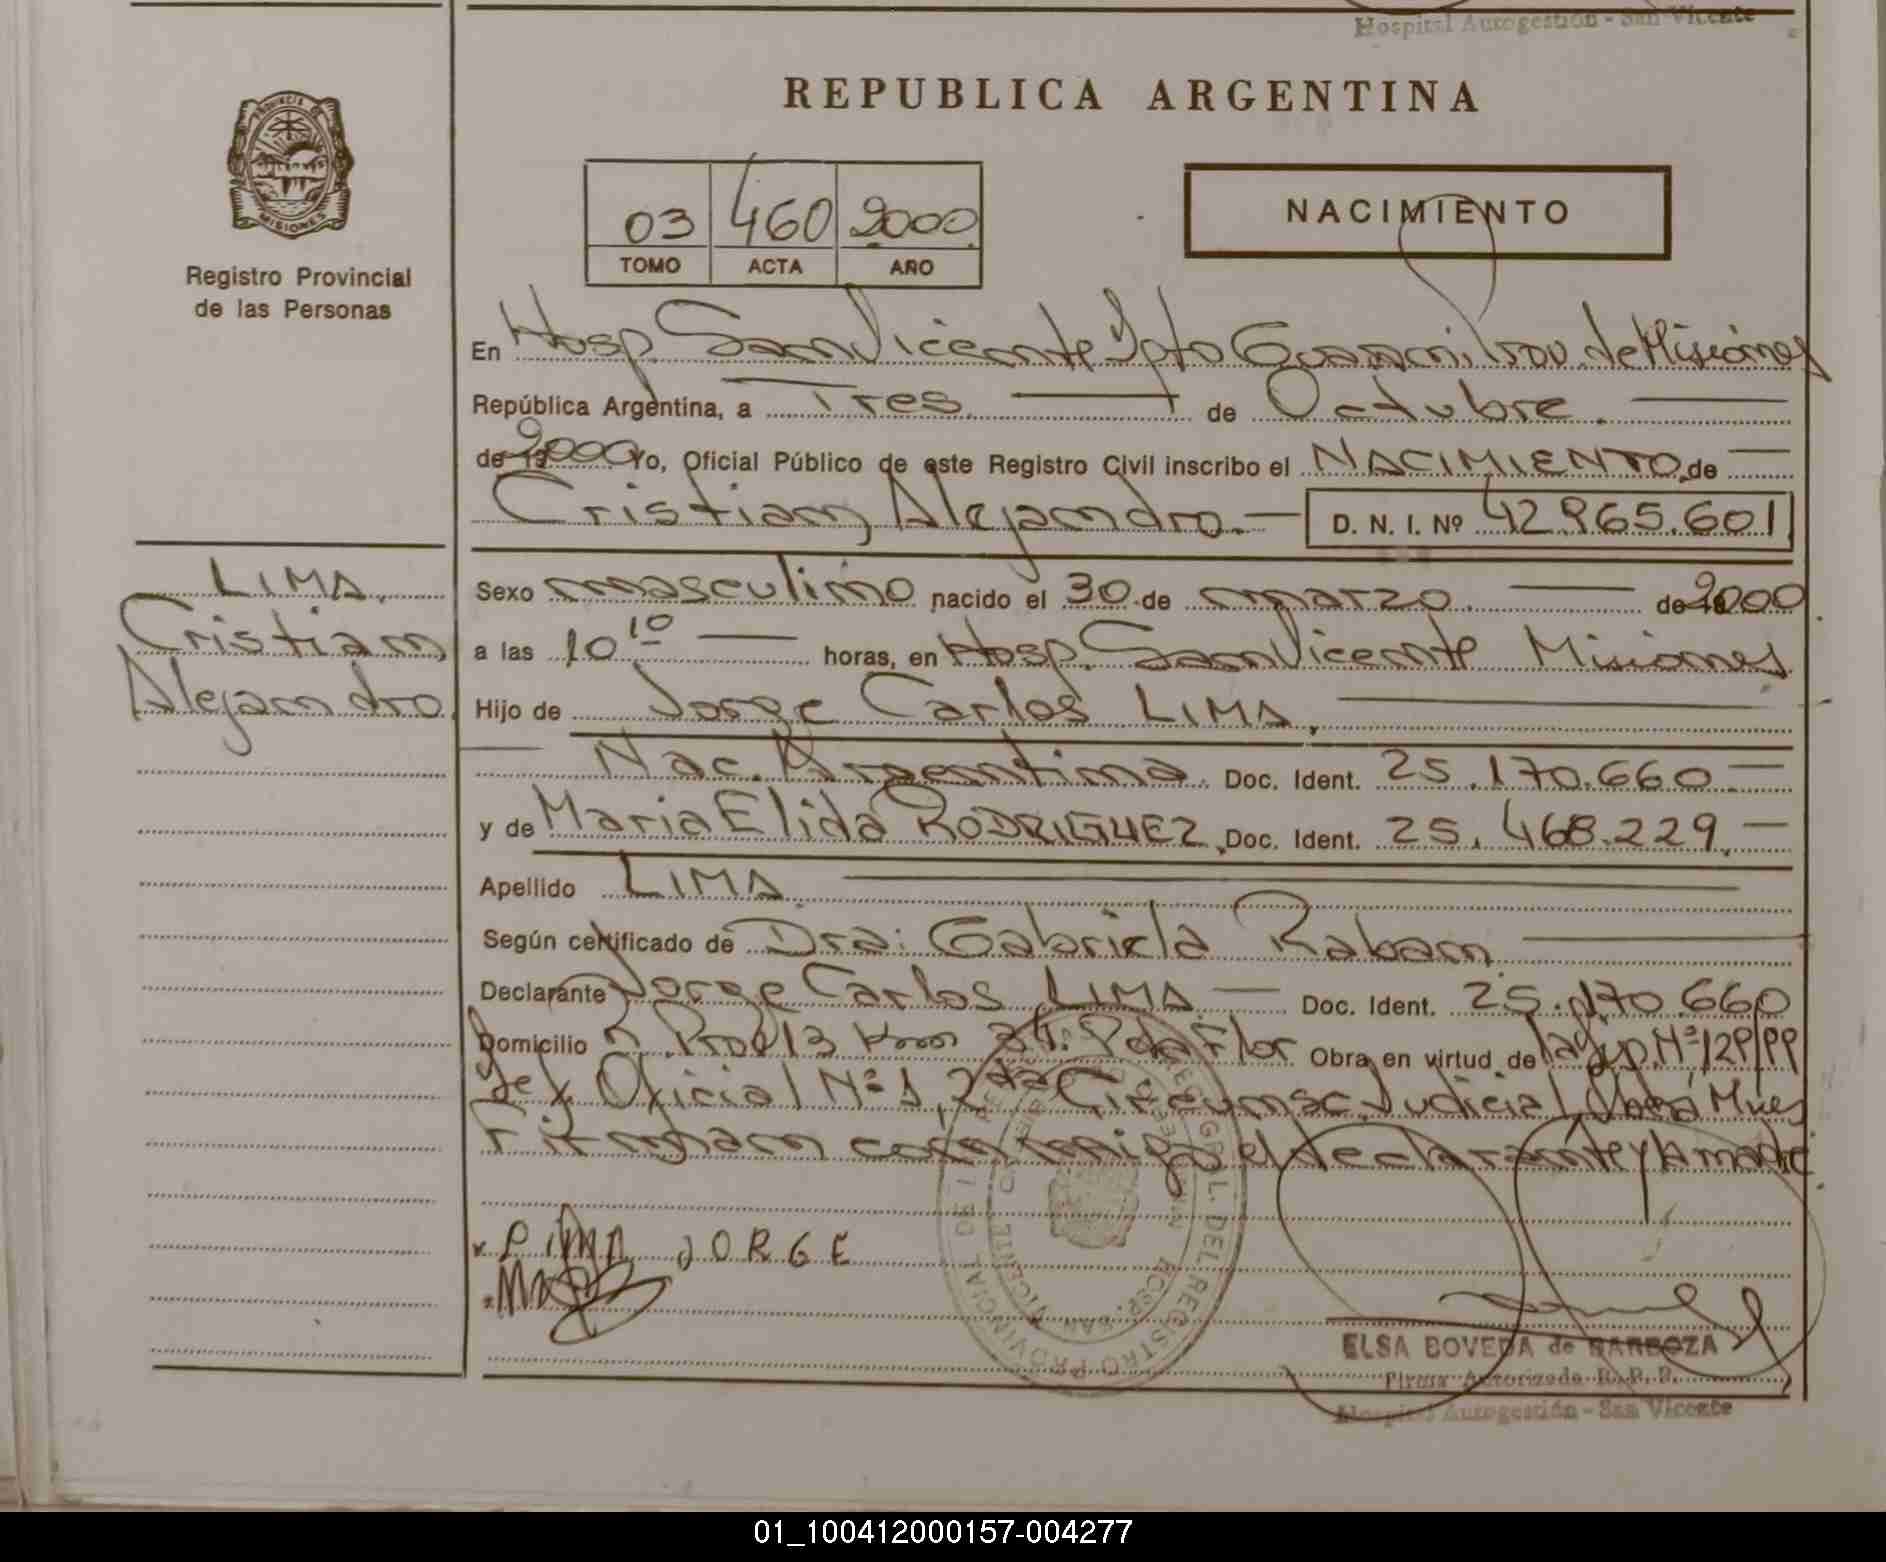 Hospital Autogestión - San Vicente
REPUBLICA ARGENTINA
PROVINCIA DE MISIONES
Registro Provincial
de las Personas
03 460 2000
TOMO ACTA AÑO
NACIMIENTO
En Hosp. San Vicente Dpto Guarani, Prov. de Misiones
República Argentina, a Tres de Octubre.
de 19 2000 Yo, Oficial Público de este Registro Civil inscribo el NACIMIENTO de
Cristian Alejandro.- D. N. I. Nº 42.965.601
LIMA,
Cristian
Alejandro.
Sexo masculino nacido el 30 de marzo. de 2000
a las 10 10 horas, en Hosp. San Vicente Misiones
Hijo de Jorge Carlos LIMA,
Nac. Argentina. Doc. Ident. 25.170.660
y de Maria Elida RODRIGUEZ, Doc. Ident. 25.468.229.
Apellido LIMA.
Según certificado de Dra: Gabriela Raban.
Declarante Jorge Carlos LIMA. Doc. Ident. 25.170.660
Domicilio R. Prov 13 Km 34. Flor Obra en virtud de la Disp. Nº 129/99
Oficial Nº 1, 2da Circunsc. Judicial, Oberá Mnes
Firman conmigo el declarante y la madre
x LIMA JORGE
REGISTRO PROVINCIAL DE LAS
HOSP. SAN VICENTE
ELSA BOVEDA de BARBOZA
Firma Autorizada R. P. P.
Hospital Autogestión - San Vicente
01_100412000157-004277